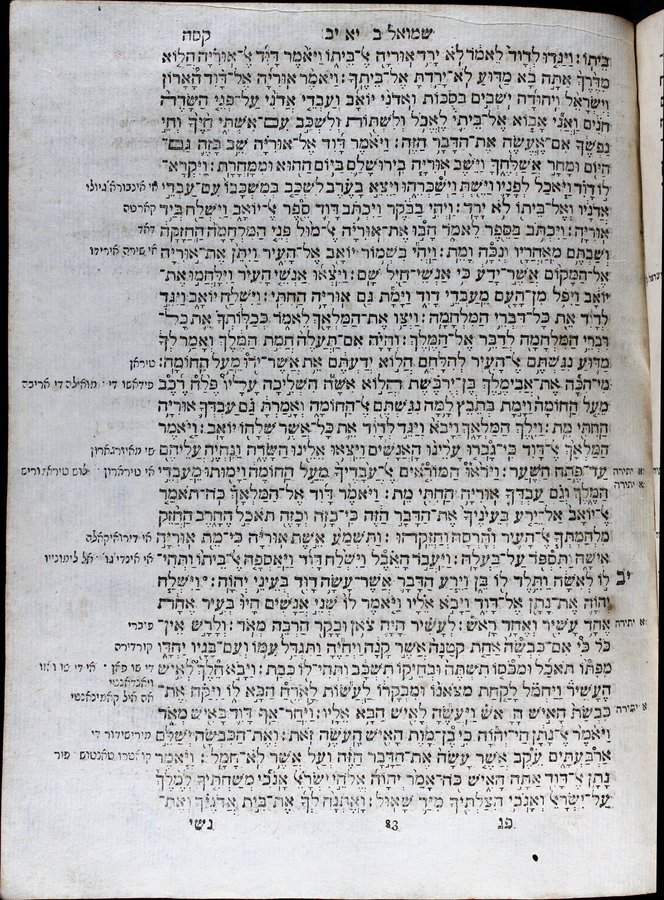 שמואל ב יא יב קסה
ביתו׃ ויגדו לדוד לאמר לא ירד אוריה אל־ביתו ויאמר דוד אל־אוריה הלוא
מדרך אתה בא מדוע לא־ירדת אל־ביתך׃ ויאמר אוריה אל־דוד הארון
וישראל ויהודה ישבים בסכות ואדני יואב ועבדי אדני על־פני השדה
חנים ואני אבוא אל־ביתי לאכל ולשתות ולשכב עם־אשתי חיך וחי
נפשך אם־אעשה את־הדבר הזה׃ ויאמר דוד אל־אוריה שב בזה גם־
היום ומחר אשלחך וישב אוריה בירושלם ביום ההוא וממחרת׃ ויקרא־
לו דוד ויאכל לפניו וישת וישכרהו ויצא בערב לשכב במשכבו עם־עבדי
אדניו ואל־ביתו לא ירד׃ ויהי בבקר ויכתב דוד ספר אל־יואב וישלח ביד
אוריה׃ ויכתב בספר לאמר הבו את־אוריה אל־מול פני המלחמה החזקה
ושבתם מאחריו ונכה ומת׃ ויהי בשמור יואב אל־העיר ויתן את־אוריה
אל־המקום אשר ידע כי אנשי־חיל שם׃ ויצאו אנשי העיר וילחמו את־
יואב ויפל מן־העם מעבדי דוד וימת גם אוריה החתי׃ וישלח יואב ויגד
לדוד את כל־דברי המלחמה׃ ויצו את־המלאך לאמר ככלותך את כל־
דברי המלחמה לדבר אל־המלך׃ והיה אם־תעלה חמת המלך ואמר לך
מדוע נגשתם אל־העיר להלחם הלוא ידעתם את אשר־ירו מעל החומה׃
מי־הכה את־אבימלך בן־ירבשת הלוא אשה השליכה עליו פלח רכב
מעל החומה וימת בתבץ למה נגשתם אל־החומה ואמרת גם עבדך אוריה
החתי מת׃ וילך המלאך ויבא ויגד לדוד את כל־אשר שלחו יואב׃ ויאמר
המלאך אל־דוד כי־גברו עלינו האנשים ויצאו אלינו השדה ונהיה עליהם
עד־פתח השער׃ ויראו המוראים אל־עבדיך מעל החומה וימותו מעבדי
המלך וגם עבדך אוריה החתי מת׃ ויאמר דוד אל־המלאך כה־תאמר
אל־יואב אל־ירע בעיניך את־הדבר הזה כי־כזה וכזה תאכל החרב החזק
מלחמתך אל־העיר והרסה וחזקהו׃ ותשמע אשת אוריה כי־מת אוריה
אישה ותספד על־בעלה׃ ויעבר האבל וישלח דוד ויאספה אל־ביתו ותהי־
לו לאשה ותלד לו בן וירע הדבר אשר־עשה דוד בעיני יהוה׃ וישלח
יב
יהוה את־נתן אל־דוד ויבא אליו ויאמר לו שני אנשים היו בעיר אחת
אחד עשיר ואחד ראש׃ לעשיר היה צאן ובקר הרבה מאד׃ ולרש אין־
כל כי אם־כבשה אחת קטנה אשר קנה ויחיה ותגדל עמו ועם־בניו יחדו
מפתו תאכל ומכסו תשתה ובחיקו תשכב ותהי־לו כבת׃ ויבא הלך לאיש
העשיר ויחמל לקחת מצאנו ומבקרו לעשות לארח הבא לו ויקח את־
כבשת האיש הראש ויעשה לאיש הבא אליו׃ ויחר־אף דוד באיש מאד
ויאמר אל־נתן חי־יהוה כי בן־מות האיש העשה זאת׃ ואת־הכבשה ישלם
ארבעתים עקב אשר עשה את־הדבר הזה ועל אשר לא־חמל׃ ויאמר
נתן אל־דוד אתה האיש כה־אמר יהוה אלהי ישראל אנכי משחתיך למלך
על־ישראל ואנכי הצלתיך מיד שאול׃ ואתנה לך את־בית אדניך ואת־
פג 83 נשי
קארטה
טיראן
קורדירה
א יתירה
א יתירה
א יתירה
א יתירה